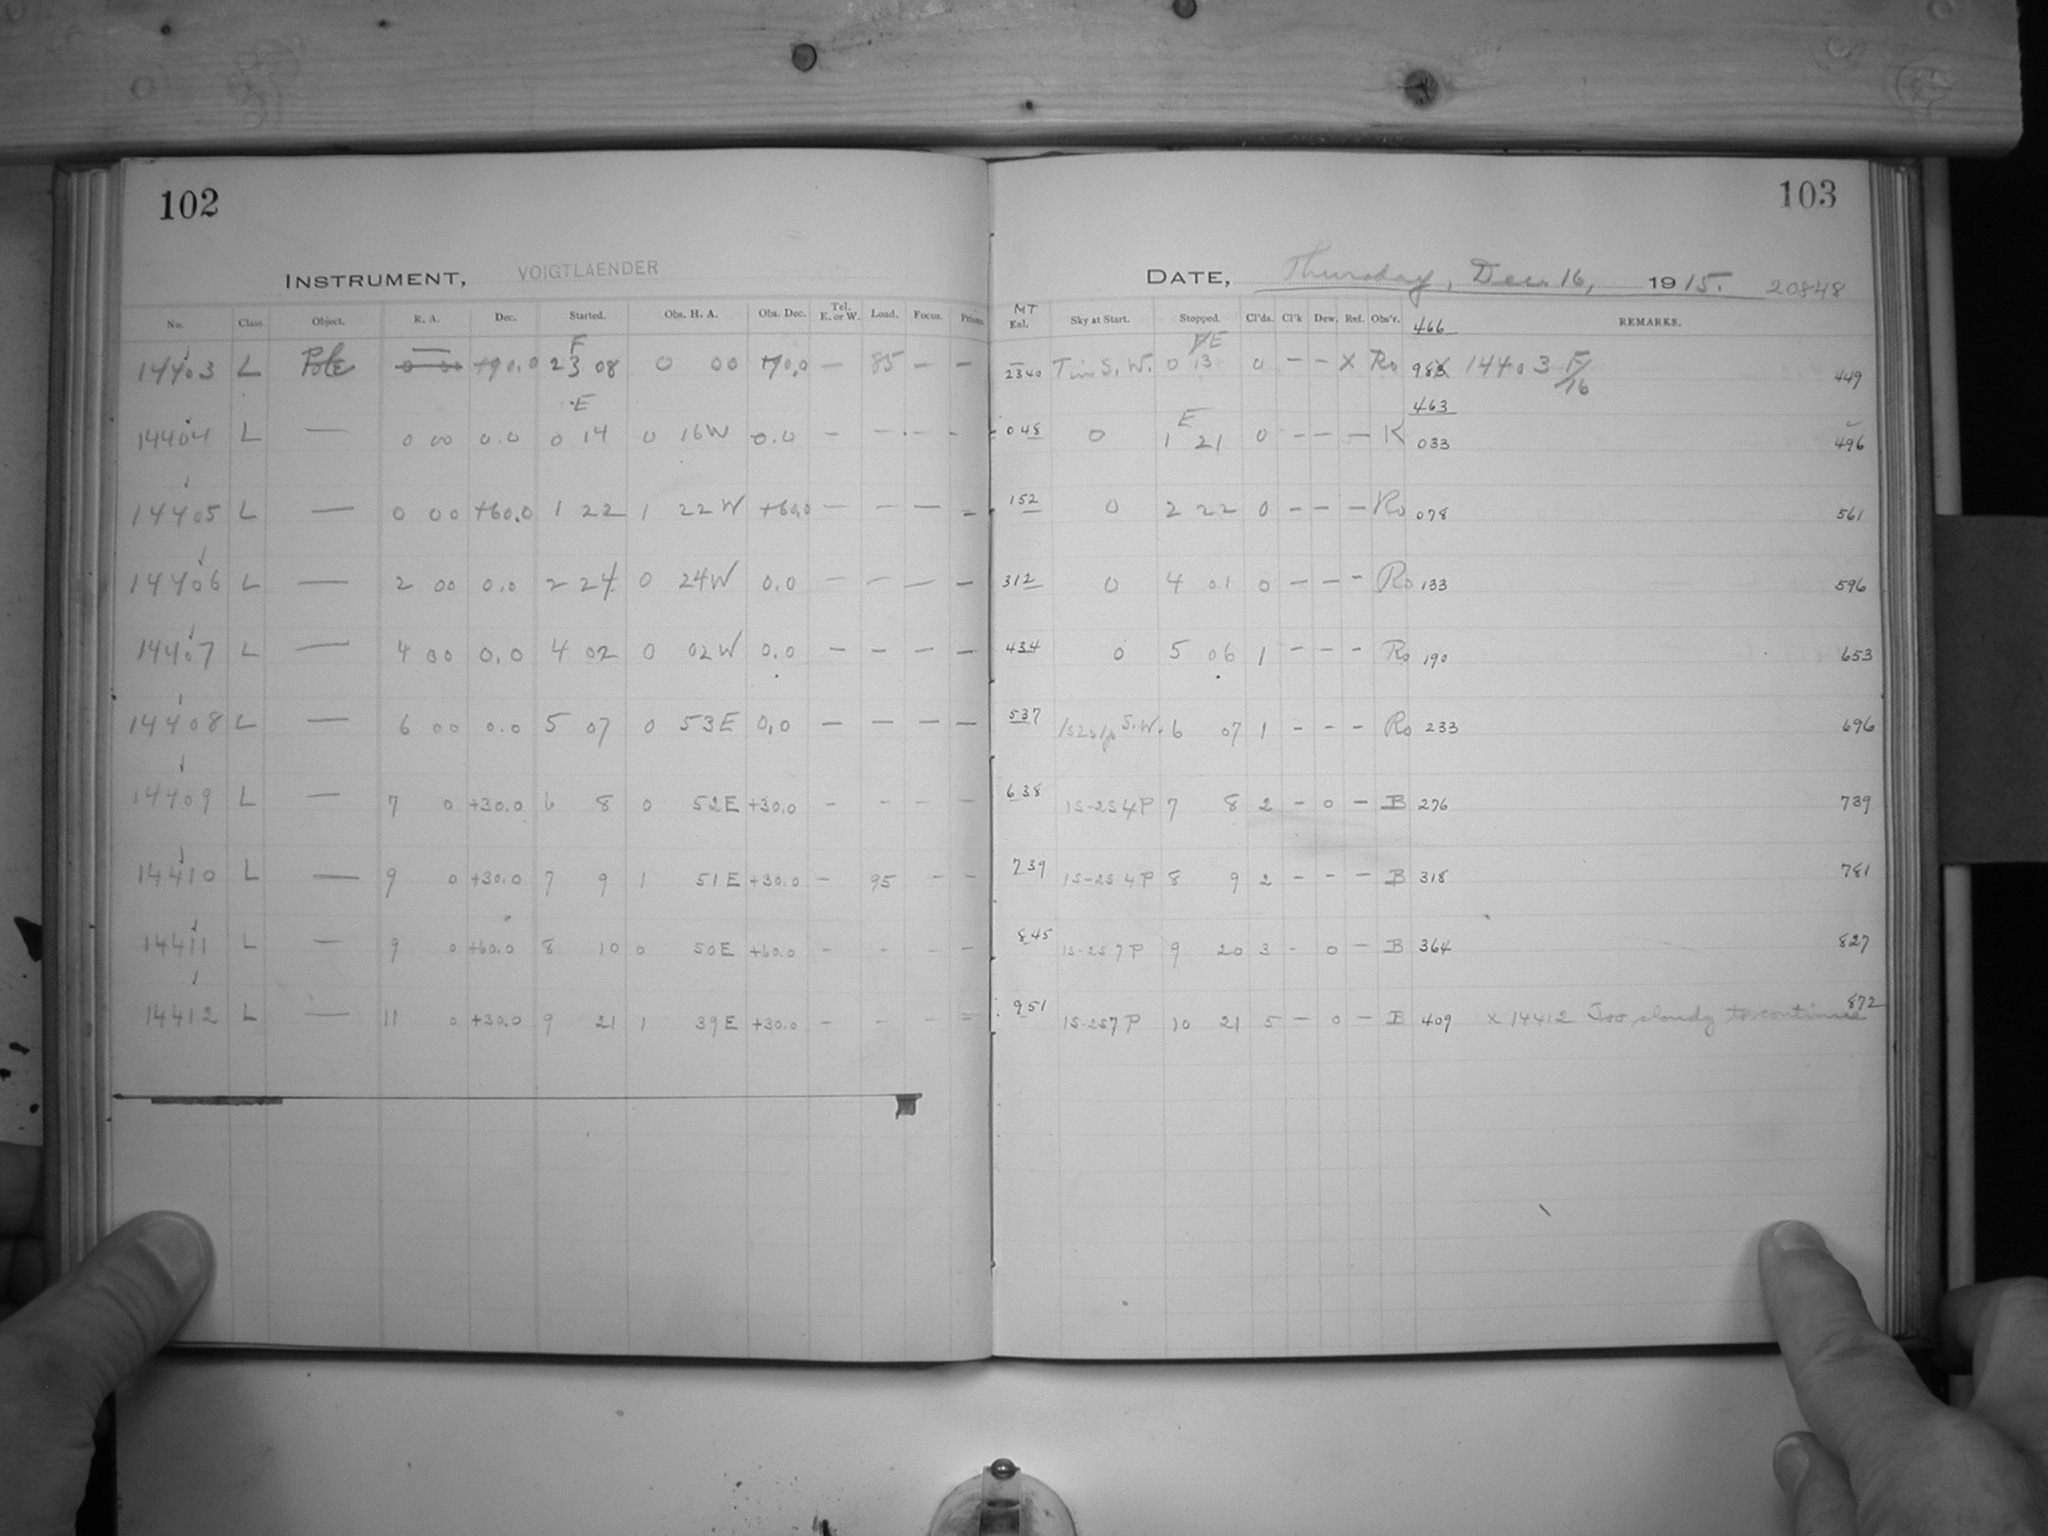 102
103
INSTRUMENT, VOIGTLAENDER
DATE, Thursday, Dec. 16, 1915. 20848
No. Class. Object. R. A. Dec. Started. Obs. H. A. Obs. Dec. Tel. E. or W. Load. Focus. Prisms. MT Esl. Sky at Start. Stopped. Cl'ds. Cl'k Dew. Ref. Obs'r. 466 REMARKS.
F E
14403 L Pole +90.0 23 08 0 00 +90.0 — 85 — — 2340 S. W. 0 13 0 — — X Ro 14403 F/16 449
E E 463
14404 L — 0 00 0.0 0 14 0 16W 0.0 — — — — 048 0 1 21 0 — — — K 033 496
14405 L — 0 00 +60.0 1 22 1 22 W +60.0 — — — — 152 0 2 22 0 — — — Ro 078 561
14406 L — 2 00 0.0 2 24 0 24W 0.0 — — — — 312 0 4 01 0 — — — Ro 133 596
14407 L — 4 00 0.0 4 02 0 02W 0.0 — — — — 434 0 5 06 1 — — — Ro 190 653
14408 L — 6 00 0.0 5 07 0 53E 0.0 — — — — 537 S.W. 6 07 1 — — — Ro 233 696
14409 L — 7 0 +30.0 6 8 0 52E +30.0 — — — — 638 1S-2S 4P 7 8 2 — 0 — B 276 739
14410 L — 9 0 +30.0 7 9 1 51E +30.0 — 95 — — 739 1S-2S 4P 8 9 2 — — — B 318 781
14411 L — 9 0 +60.0 8 10 0 50E +60.0 — — — — 845 1S-2S 7P 9 20 3 — 0 — B 364 827
14412 L — 11 0 +30.0 9 21 1 39E +30.0 — — — — 951 1S-2S7P 10 21 5 — 0 — B 409 x 14412 Too cloudy to continue 872